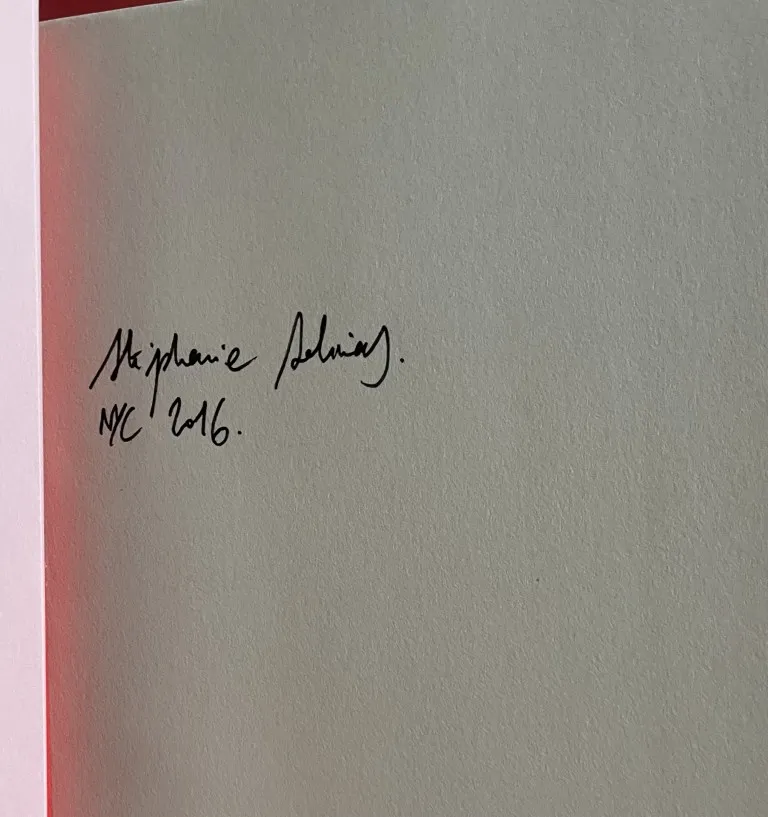 Stéphanie Solinas.
NYC 2016.